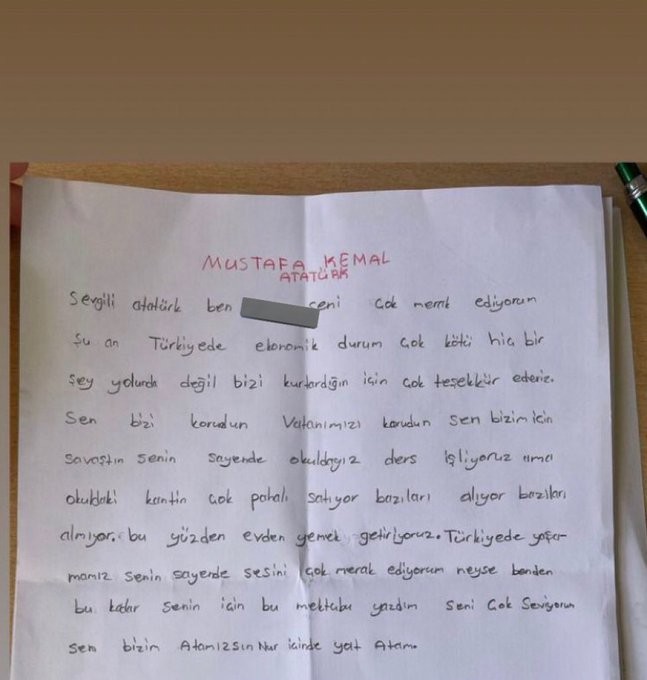 MUSTAFA KEMAL
ATATÜRK
Sevgili atatürk ben seni çok merak ediyorum
şu an Türkiyede ekonomik durum çok kötü hiç bir
şey yolunda değil bizi kurtardığın için çok teşekkür ederiz.
Sen bizi korudun Vatanımızı korudun sen bizim için
savaştın senin sayende okuldayız ders işliyoruz ama
okuldaki kantin çok pahalı satıyor bazıları alıyor bazıları
almıyor. bu yüzden evden yemek getiriyoruz. Türkiyede yaşa-
mamız senin sayende sesini çok merak ediyorum neyse benden
bu kadar senin için bu mektubu yazdım seni çok seviyorum
sen bizim Atamızsın Nur içinde yat Atam.